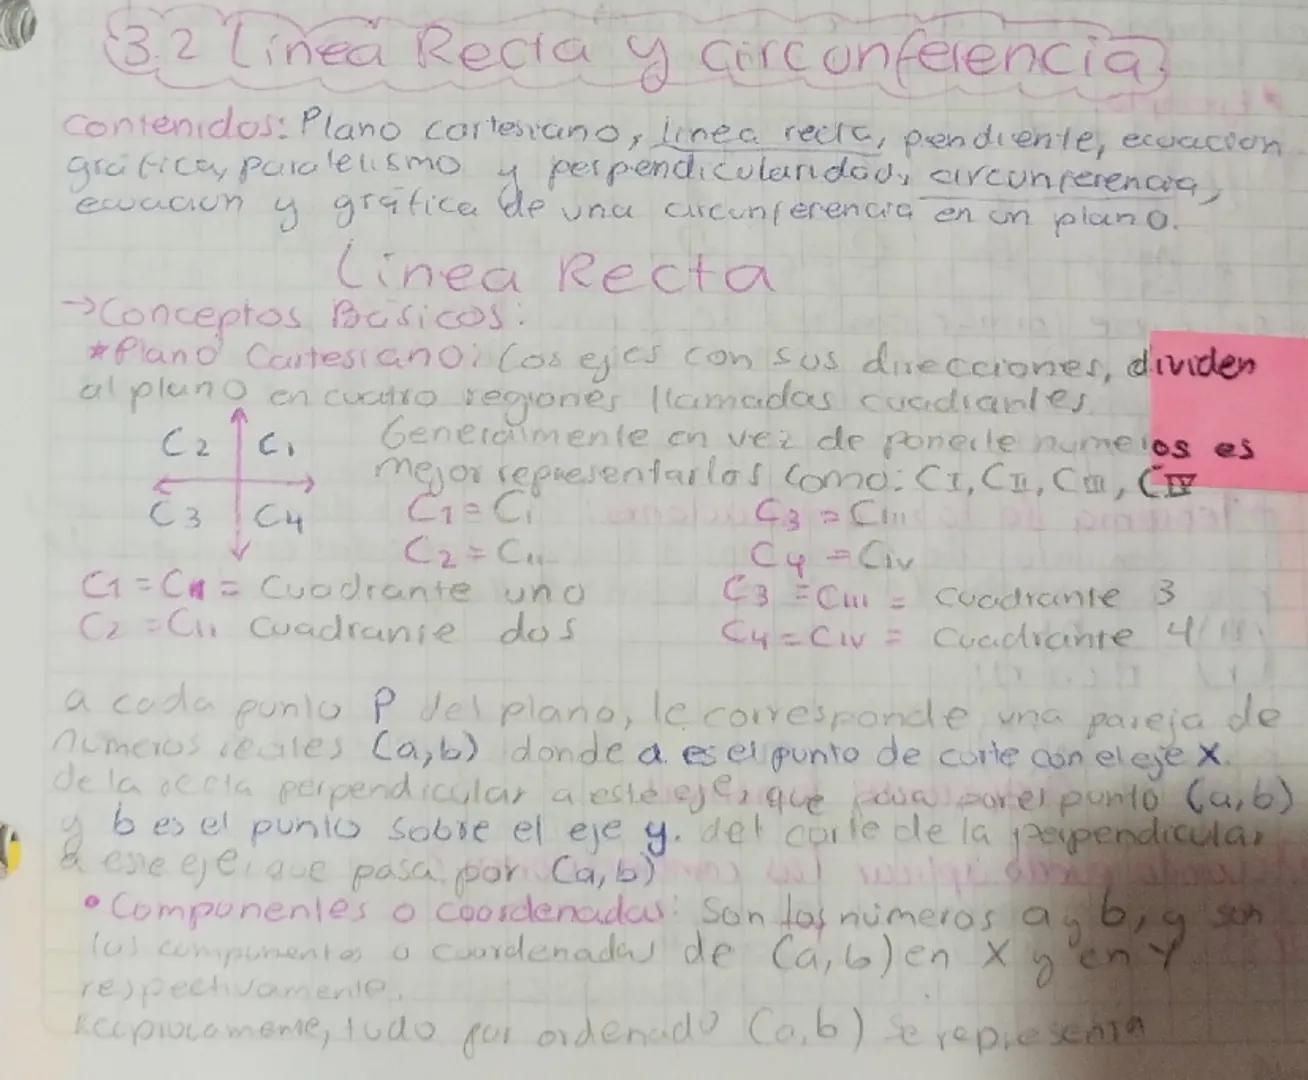 3.2 Línea Recta y circunferencia
Contenidos: Plano cartesiano, línea recta, pendiente, ecuacion
gráfica, paralelismo y perpendicularidad, circunferencia,
ecuacion y gráfica de una circunferencia en un plano.
Línea Recta
→Conceptos Básicos:
*Plano Cartesiano: Los ejes con sus direcciones, dividen
al plano en cuatro regiones llamadas cuadrantes.
Generalmente en vez de ponerle numeros es
mejor representarlos como: CI, CII, CIII, CIV
C2 C1
C3 C4
C1 = CI C3 = CIII
C2 = CII C4 = CIV
C1 = CI = Cuadrante uno C3 = CIII = cuadrante 3
C2 = CII Cuadrante dos C4 = CIV = Cuadrante 4
a cada punto P del plano, le corresponde una pareja de
números reales (a,b) donde a es el punto de corte con el eje X.
de la recta perpendicular a este eje, que pasa por el punto (a,b)
y b es el punto sobre el eje y. del corte de la perpendicular
a ese eje, que pasa por (a,b)
• Componentes o coordenadas: Son los números a y b, y son
las componentes o coordenadas de (a,b) en X y en Y
respectivamente.
Recíprocamente, todo par ordenado (a,b) se representa